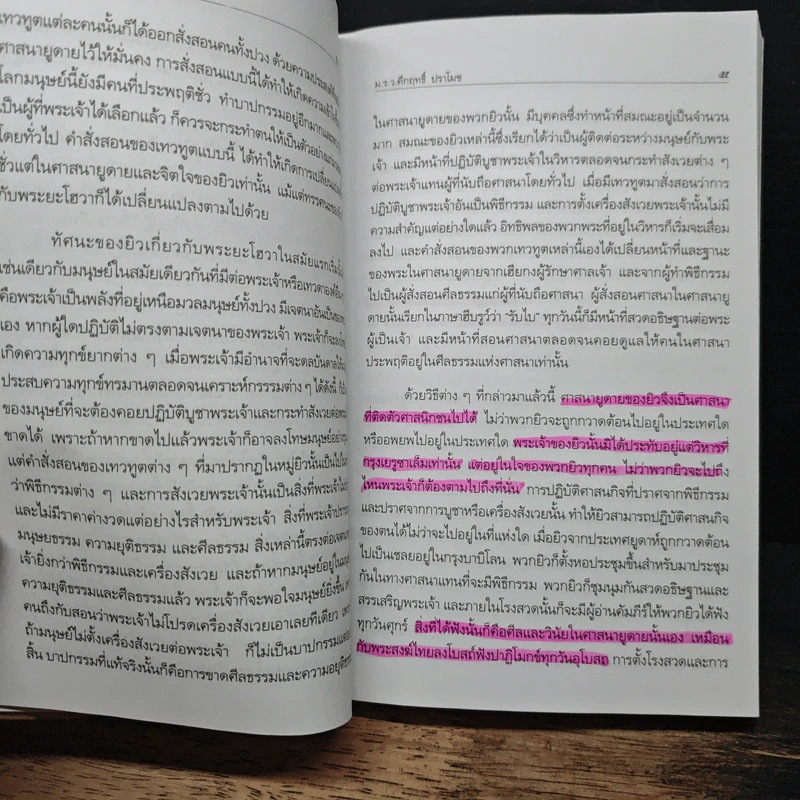 เทวทูตแต่ละคนนั้นก็ได้ออกสั่งสอนคนทั้งปวง ด้วยความประสงค์
ศาสนายูดายไว้ให้มั่นคง การสั่งสอนแบบนี้ได้ทำให้เกิดความ
โลกมนุษย์นี้ยังมีคนที่ประพฤติชั่ว ทำบาปกรรมอยู่อีกมากและ
เป็นผู้ที่พระเจ้าได้เลือกแล้ว ก็ควรจะกระทำตนให้เป็นตัวอย่าง
โดยทั่วไป คำสั่งสอนของเทวทูตแบบนี้ ได้ทำให้เกิดการเปลี่ยน
ชั่วแต่ในศาสนายูดายและจิตใจของยิวเท่านั้น แม้แต่ทรรศนะของ
กับพระยะโฮวาก็ได้เปลี่ยนแปลงตามไปด้วย
ทัศนะของยิวเกี่ยวกับพระยะโฮวาในสมัยแรกเริ่มนั้น
เช่นเดียวกับมนุษย์ในสมัยเดียวกันที่มีต่อพระเจ้าหรือเทวดาองค์อื่น
คือพระเจ้าเป็นพลังที่อยู่เหนือมวลมนุษย์ทั้งปวง มีเจตนาอันเป็นของ
เอง หากผู้ใดปฏิบัติไม่ตรงตามเจตนาของพระเจ้า พระเจ้าก็จะลงโทษ
เกิดความทุกข์ยากต่าง ๆ เมื่อพระเจ้ามีอำนาจที่จะดลบันดาลให้
ประสบความทุกข์ทรมานตลอดจนเคราะห์กรรมต่าง ๆ ได้ดังนี้
ของมนุษย์ที่จะต้องคอยปฏิบัติบูชาพระเจ้าและกระทำสังเวยต่อพระเจ้า
ขาดได้ เพราะถ้าหากขาดไปแล้วพระเจ้าก็อาจลงโทษมนุษย์อย่าง
แต่คำสั่งสอนของเทวทูตต่าง ๆ ที่มาปรากฏในหมู่ยิวนั้นเป็นไปใน
ว่าพิธีกรรมต่าง ๆ และการสังเวยพระเจ้านั้นเป็นสิ่งที่พระเจ้าไม่
และไม่มีราคาค่างวดแต่อย่างไรสำหรับพระเจ้า สิ่งที่พระเจ้า
มนุษยธรรม ความยุติธรรม และศีลธรรม สิ่งเหล่านี้ตรงต่อเจตนา
เจ้ายิ่งกว่าพิธีกรรมและเครื่องสังเวย และถ้าหากมนุษย์อยู่ใน
ความยุติธรรมและศีลธรรมแล้ว พระเจ้าก็จะพอใจมนุษย์ยิ่งขึ้น
คนถึงกับสอนว่าพระเจ้าไม่โปรดเครื่องสังเวยเอาเลยทีเดียว
ถ้ามนุษย์ไม่ตั้งเครื่องสังเวยต่อพระเจ้า ก็ไม่เป็นบาปกรรมแต่
สิ้น บาปกรรมที่แท้จริงนั้นก็คือการขาดศีลธรรมและความอยุติธรรม
ม.ร.ว.คึกฤทธิ์ ปราโมช
๕๕
ในศาสนายูดายของพวกยิวนั้น มีบุคคลซึ่งทำหน้าที่สมณะอยู่เป็นจำนวน
มาก สมณะของยิวเหล่านี้ซึ่งเรียกได้ว่าเป็นผู้ติดต่อระหว่างมนุษย์กับพระ
เจ้า และมีหน้าที่ปฏิบัติบูชาพระเจ้าในวิหารตลอดจนกระทำสังเวยต่าง ๆ
ต่อพระเจ้าแทนผู้ที่นับถือศาสนาโดยทั่วไป เมื่อมีเทวทูตมาสั่งสอนว่าการ
ปฏิบัติบูชาพระเจ้าอันเป็นพิธีกรรม และการตั้งเครื่องสังเวยพระเจ้านั้นไม่มี
ความสำคัญแต่อย่างใดแล้ว อิทธิพลของพวกพระที่อยู่ในวิหารก็เริ่มจะเสื่อม
ลงไป และคำสั่งสอนของพวกเทวทูตเหล่านี้เองได้เปลี่ยนหน้าที่และฐานะ
ของพระในศาสนายูดายจากเฮียกงผู้รักษาศาลเจ้า และจากผู้ทำพิธีกรรม
ไปเป็นผู้สั่งสอนศีลธรรมแก่ผู้ที่นับถือศาสนา ผู้สั่งสอนศาสนาในศาสนายู
ดายนั้นเรียกในภาษาฮีบรูว์ว่า “รับไบ” ทุกวันนี้ก็มีหน้าที่สวดอธิษฐานต่อพระ
ผู้เป็นเจ้า และมีหน้าที่สอนศาสนาตลอดจนคอยดูแลให้คนในศาสนา
ประพฤติอยู่ในศีลธรรมแห่งศาสนาเท่านั้น
ด้วยวิธีต่าง ๆ ที่กล่าวมาแล้วนี้ ศาสนายูดายของยิวจึงเป็นศาสนา
ที่ติดตัวศาสนิกชนไปได้ ไม่ว่าพวกยิวจะถูกกวาดต้อนไปอยู่ในประเทศใด
หรืออพยพไปอยู่ในประเทศใด พระเจ้าของยิวนั้นมิได้ประทับอยู่แต่วิหารที่
กรุงเยรูซาเล็มเท่านั้น แต่อยู่ในใจของพวกยิวทุกคน ไม่ว่าพวกยิวจะไปถึง
ไหนพระเจ้าก็ต้องตามไปถึงที่นั่น การปฏิบัติศาสนกิจที่ปราศจากพิธีกรรม
และปราศจากการบูชาหรือเครื่องสังเวยนั้น ทำให้ยิวสามารถปฏิบัติศาสนกิจ
ของตนได้ไม่ว่าจะไปอยู่ในที่แห่งใด เมื่อยิวจากประเทศยูดาห์ถูกกวาดต้อน
ไปเป็นเชลยอยู่ในกรุงบาบิโลน พวกยิวก็ตั้งหอประชุมขึ้นสำหรับมาประชุม
กันในทางศาสนาแทนที่จะมีพิธีกรรม พวกยิวก็ชุมนุมกันสวดอธิษฐานและ
สรรเสริญพระเจ้า และภายในโรงสวดนั้นก็จะมีผู้อ่านคัมภีร์ให้พวกยิวได้ฟัง
ทุกวันศุกร์ สิ่งที่ได้ฟังนั้นก็คือศีลและวินัยในศาสนายูดายนั้นเอง เหมือน
กับพระสงฆ์ไทยลงโบสถ์ฟังปาฏิโมกข์ทุกวันอุโบสถ การตั้งโรงสวดและการ